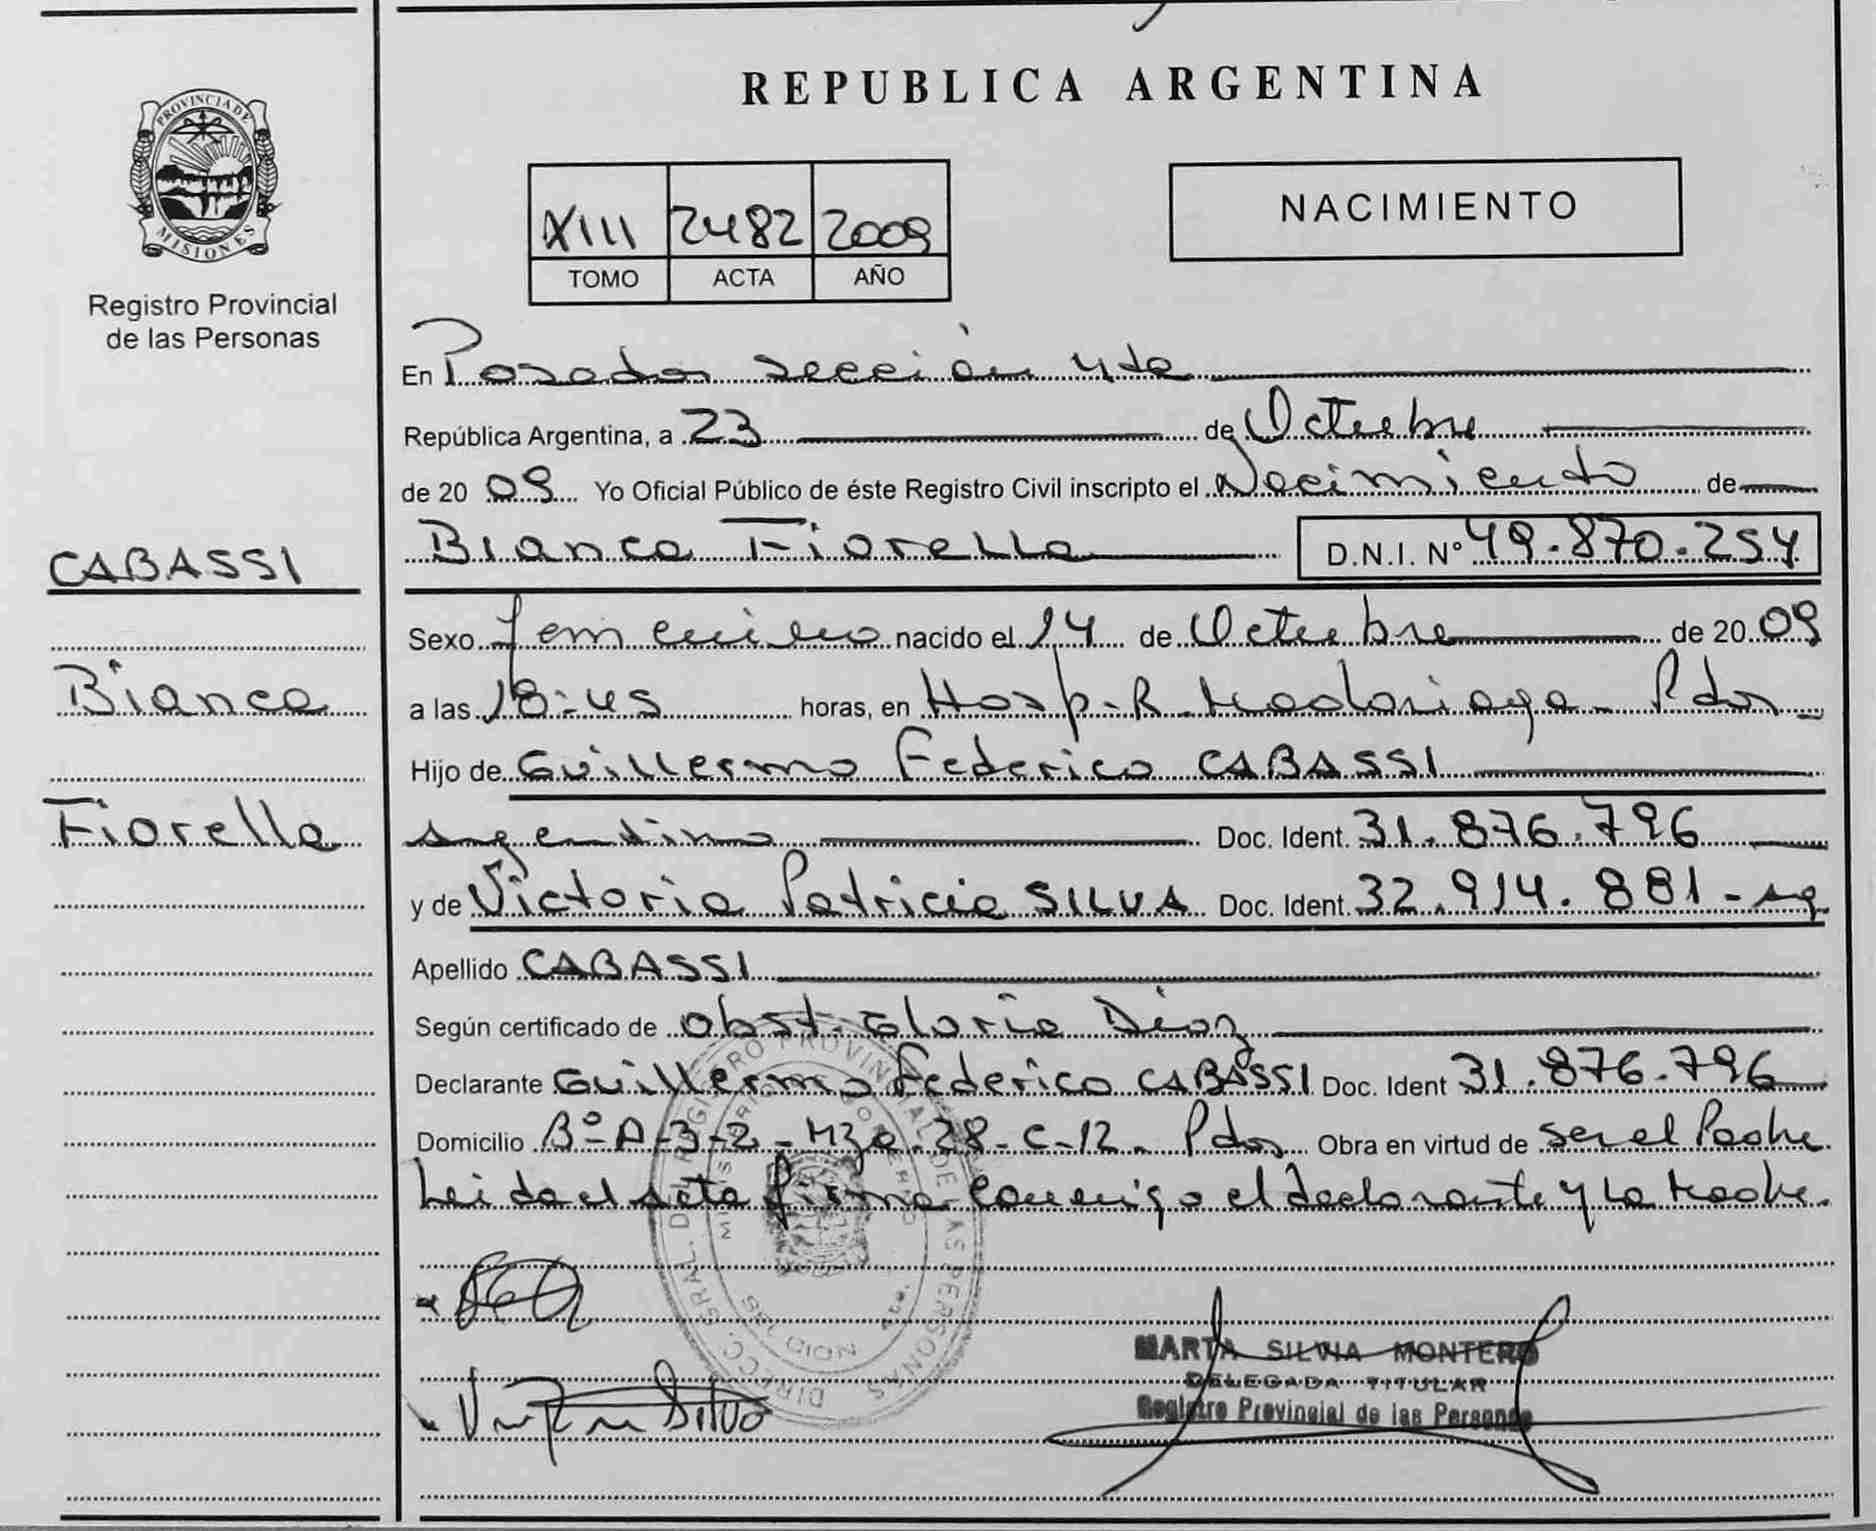 PROVINCIA DE
MISIONES
Registro Provincial
de las Personas
CABASSI
Bianca
Fiorella
REPUBLICA ARGENTINA
XIII 2482 2009
TOMO ACTA AÑO
NACIMIENTO
En Posadas sección 4ta
República Argentina, a 23 de Octubre
de 20 09 Yo Oficial Público de éste Registro Civil inscripto el Nacimiento de
Bianca Fiorella D.N.I. Nº 49.870.254
Sexo femenino nacido el 14 de Octubre de 20 09
a las 18-45 horas, en Hosp. R. Madariaga - Pdas -
Hijo de Guillermo Federico CABASSI
argentino Doc. Ident. 31.876.796
y de Victoria Patricia SILVA Doc. Ident. 32.914.881 - ag
Apellido CABASSI
Según certificado de Obst. Gloria Díaz
Declarante Guillermo Federico CABASSI Doc. Ident 31.876.796
Domicilio Bº A-3-2 - Mza. 28 - C-12 - Pdas Obra en virtud de ser el Padre.
Leida el acta firma conmigo el declarante y la Madre.
DIRECC. GRAL. DEL REGISTRO PROVINCIAL DE LAS PERSONAS
Silva
MARTA SILVIA MONTERO
DELEGADA TITULAR
Registro Provincial de las Personas